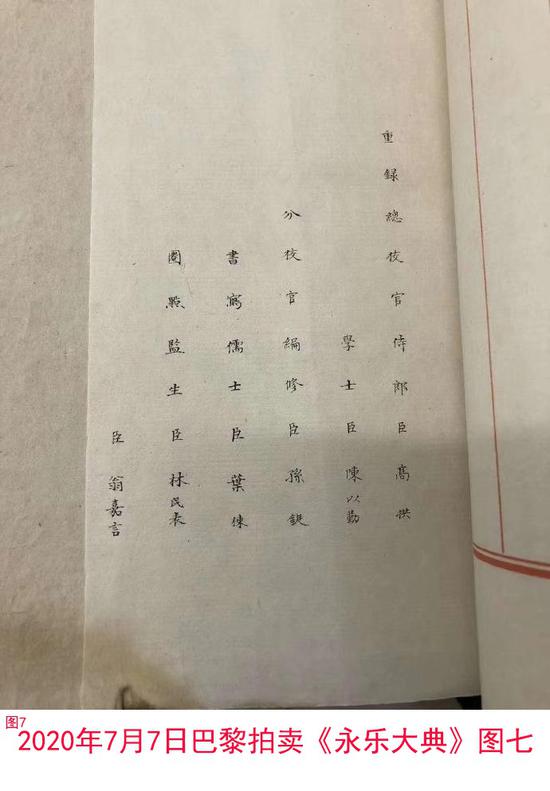 重錄總校官侍郎臣高拱
學士臣陳以勤
分校官編修臣孫鋌
書寫儒士臣葉悚
圈點監生臣林民表
臣翁嘉言
图7
2020年7月7日巴黎拍卖《永乐大典》图七